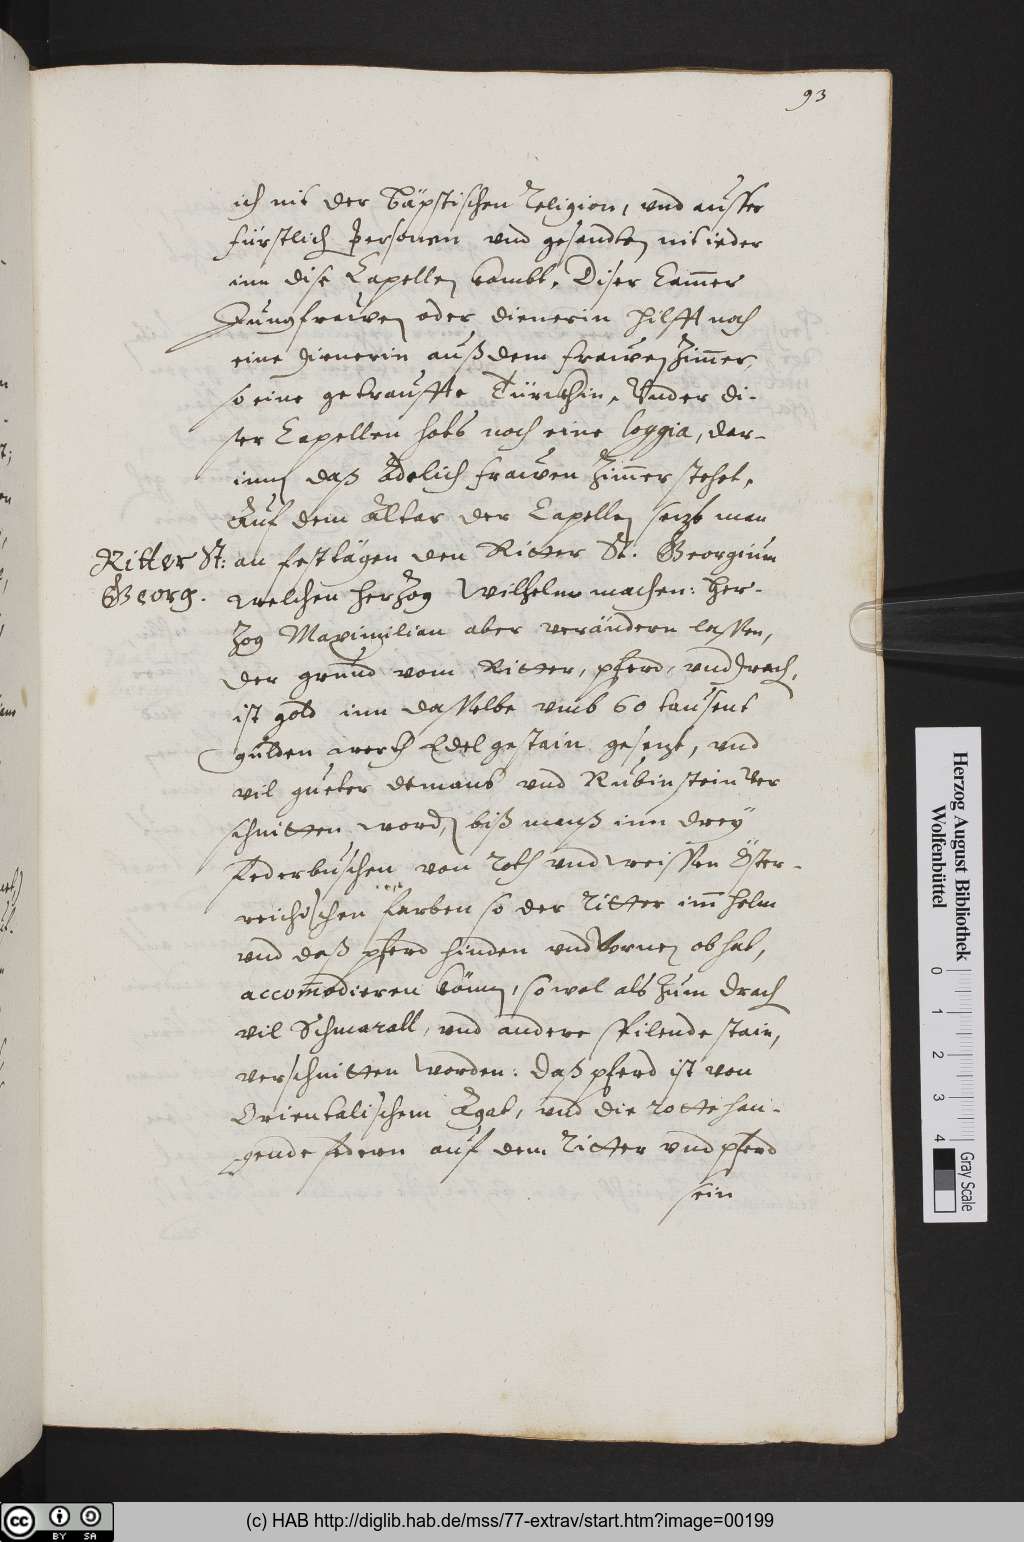 93
ich nit der Bäpstischen Religion, und ausser
fürstlich Personen und gesandten nit ieder
inn dise Capellen kombt. Diser Cam̅er
Jungfrauwen oder dienerin hilfft noch
eine dienerin auß dem frawen Zim̅er,
so eine getauffte Türckhin. Under di-
ser Capellen hats noch eine loggia, dar-
inn daß Adelich frawen Zim̅er stehet.
Auf dem Altar der Capellen sezt man
Ritter St:
Georg.
an festtägen den Ritter St. Georgium
welchen herzog Wilhelm machen: her-
zog Maximilian aber verändern lassen,
der grund vom Ritter, pferd, und drach,
ist gold inn dasselbe umb 60 tausent
gulden werth Edelgestain gesezt, und
vil gueter demant und Rubinstein ver
schnitten worden, biß manß inn drey
federbuschen von roth und weissen Öster-
reichischen farben so der ritter im̅ helm
und daß pferd hinden und vornen ob hat,
accom̅odieren könn, so wol als zum drach
vil Schmarall, und andere spilende stain,
verschnitten worden: daß pferd ist von
Orientalischem Agat, und die rotte han-
gende federn auf dem ritter und pferd
sein
Herzog August Bibliothek
Wolfenbüttel
0 1 2 3 4
Gray Scale
cc BY SA
(c) HAB http://diglib.hab.de/mss/77-extrav/start.htm?image=00199